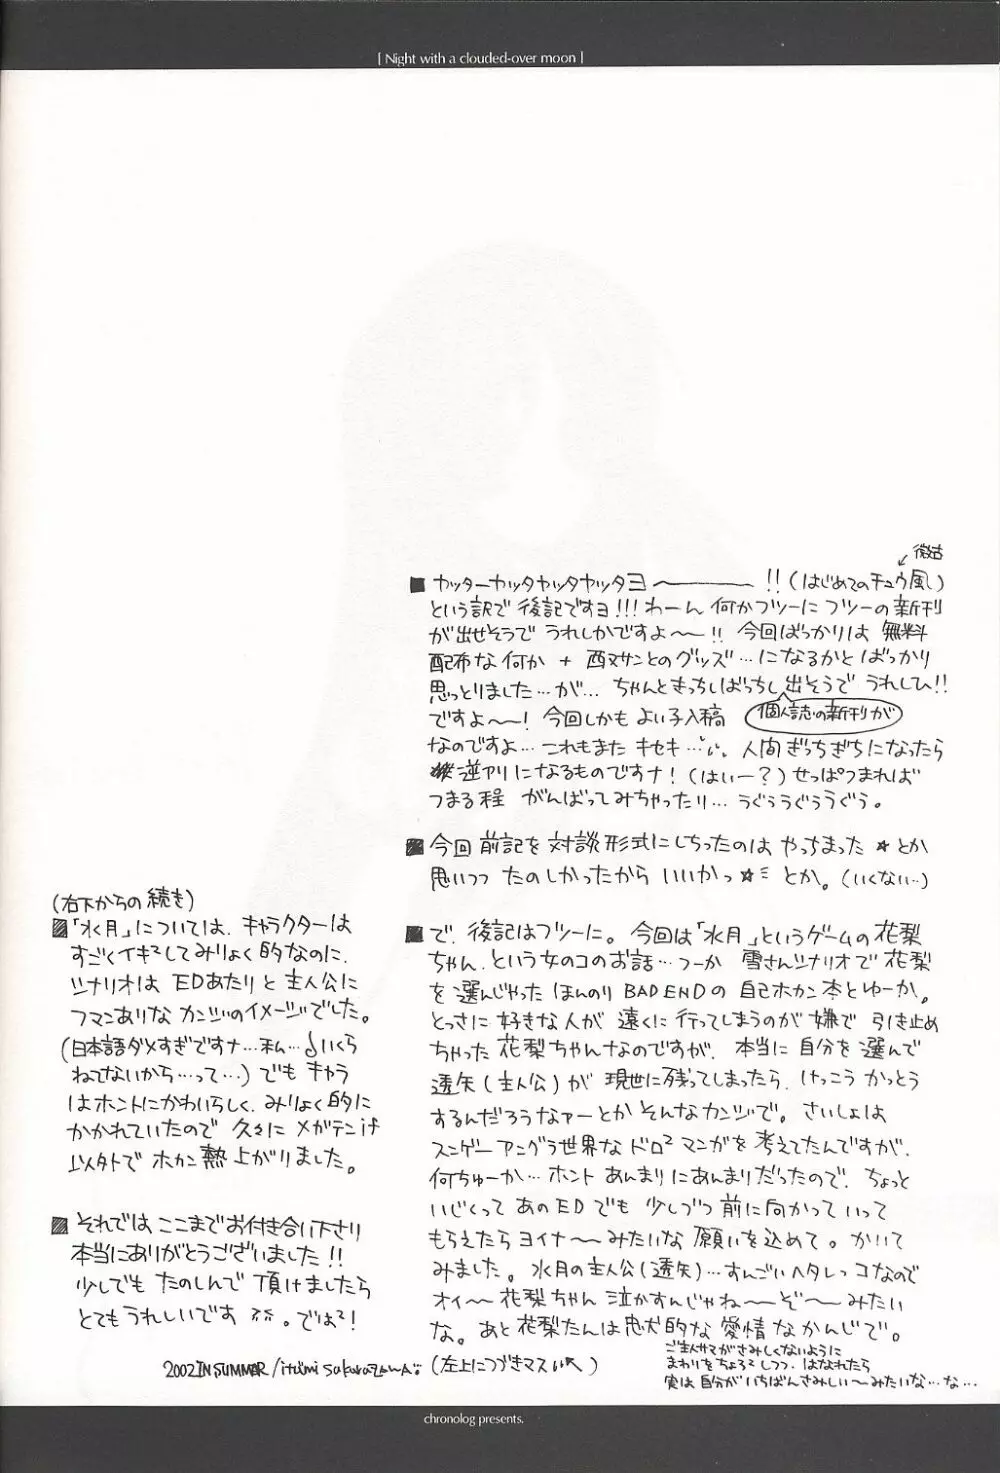 [ Night with a clouded-over moon ]
微古
■ ヤッターヤッタヤッタヤッタヨ────!!(はじめてのチュウ風)
という訳で 後記ですヨ!!! わーん 何かフツーに フツーの新刊
が出せそうで うれしかですよ〜!! 今回ばっかりは 無料
配布な何か + 酉又サンとのグッズ…になるかと ばっかり
思っとりました…が… ちゃんときっちしばっちし出そうで うれしひ!!
個人誌の新刊が
ですよ〜! 今回しかも よい子入稿
なのですよ… これもまた キセキ… 人間 ぎっちぎちになったら
逆アリになるものですナ! (はぃー?) せっぱつまれば
つまる程 がんばってみちゃったり… うぐぅうぐぅうぐぅ。
■ 今回 前記を 対談形式にしちったのは やっちまった☆とか
思いつつ たのしかったから いいかっ☆ミ とか。(いくない…)
■ で、後記はフツーに。今回は「水月」というゲームの花梨
ちゃん、という女のコのお話…つーか 雪さんシナリオで 花梨
を選んじゃった ほんのり BAD ENDの 自己ホカン本とゆーか。
とっさに 好きな人が 遠くに行ってしまうのが 嫌で 引き止め
ちゃった 花梨ちゃんなのですが、本当に 自分を選んで
透矢(主人公)が 現世に残ってしまったら、けっこう かっとう
するんだろうなァーとか そんなカンジで。さいしょは
スンゲーアングラ世界な ドロ²マンガを 考えてたんですが、
何ちゅーか… ホント あんまりにあんまりだったので、ちょっと
いじくって あのEDでも 少しづつ 前に向かって いって
もらえたら ヨイナ〜みたいな 願いを込めて。かいて
みました。水月の主人公(透矢)… すんごいヘタレっコなので
オイ〜 花梨ちゃん 泣かすんじゃね〜ぞ〜 みたい
な。あと 花梨たんは 忠犬的な 愛情 なかんじで。
ご主人サマがさみしくないように
まわりをちょろ²しつつ、はなれたら
実は自分がいちばんさみしい〜みたいな…な…
(左上につづきマス)
(右下からの続き)
■「水月」については、キャラクターは
すごくイキ²してみりょく的なのに、
シナリオは EDあたりと主人公に
フマンありな カンジのイメージでした。
(日本語ダメすぎですナ…私…いくら
ねてないから…って…) でも キャラ
はホントにかわいらしく、みりょく的に
かかれていたので 久々に メガテンif
以外で ホカン熱 上がりました。
■ それでは ここまでお付き合い下さり
本当にありがとうございました!!
少しでも たのしんで 頂けましたら
とてもうれしいです。では²!
2002 IN SUMMER / itumi sakurazawa
chronolog presents.